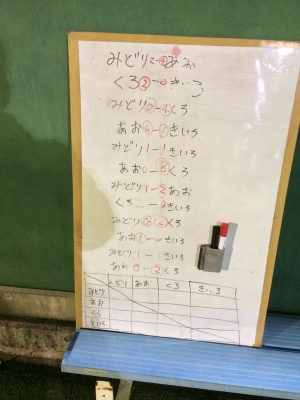 みどり2-4あお
くろ2-0きいろ
みどり2-4くろ
あお-1きいろ
みどり1-1きいろ
あお0-くろ
みどり1-2あお
くろ-きいろ
みどり-2くろ
あお-0きいろ
みどり1-1きいろ
あお0-2くろ
みどり あお くろ きいろ
みどり
あお
くろ
きいろ